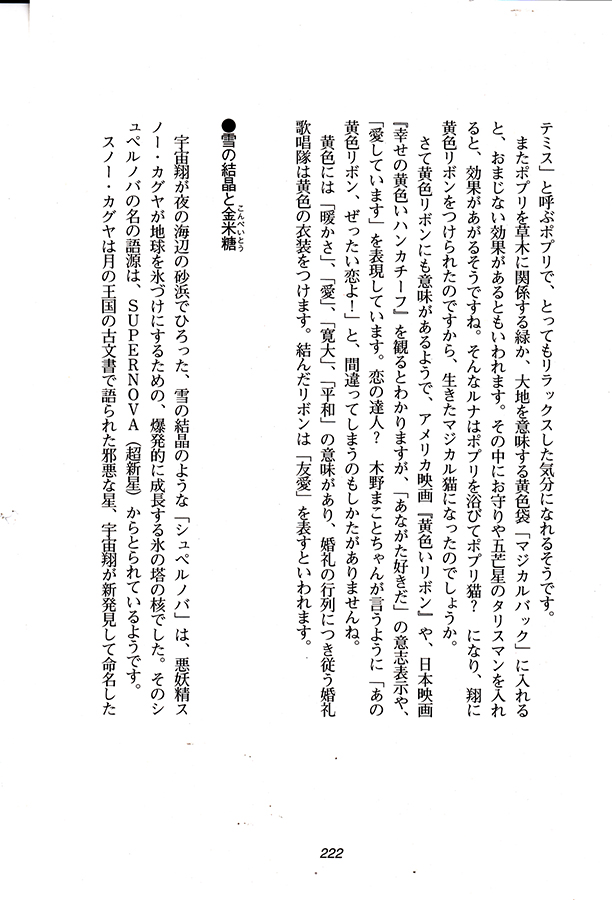 テミス」と呼ぶポプリで、とってもリラックスした気分になれるそうです。
またポプリを草木に関係する緑か、大地を意味する黄色袋「マジカルバック」に入れる
と、おまじない効果があるともいわれます。その中にお守りや五芒星のタリスマンを入れ
ると、効果があがるそうですね。そんなルナはポプリを浴びてポプリ猫？　になり、翔に
黄色リボンをつけられたのですから、生きたマジカル猫になったのでしょうか。
さて黄色リボンにも意味があるようで、アメリカ映画『黄色いリボン』や、日本映画
『幸せの黄色いハンカチーフ』を観るとわかりますが、「あながた好きだ」の意志表示や、
「愛しています」を表現しています。恋の達人？　木野まことちゃんが言うように「あの
黄色リボン、ぜったい恋よ！」と、間違ってしまうのもしかたがありませんね。
黄色には「暖かさ」、「愛」、「寛大」、「平和」の意味があり、婚礼の行列につき従う婚礼
歌唱隊は黄色の衣装をつけます。結んだリボンは「友愛」を表すといわれます。
●雪の結晶と金米糖
こんぺいとう
宇宙翔が夜の海辺の砂浜でひろった、雪の結晶のような「シュペルノバ」は、悪妖精ス
ノー・カグヤが地球を氷づけにするための、爆発的に成長する氷の塔の核でした。そのシ
ュペルノバの名の語源は、ＳＵＰＥＲＮＯＶＡ（超新星）からとられているようです。
スノー・カグヤは月の王国の古文書で語られた邪悪な星、宇宙翔が新発見して命名した
222